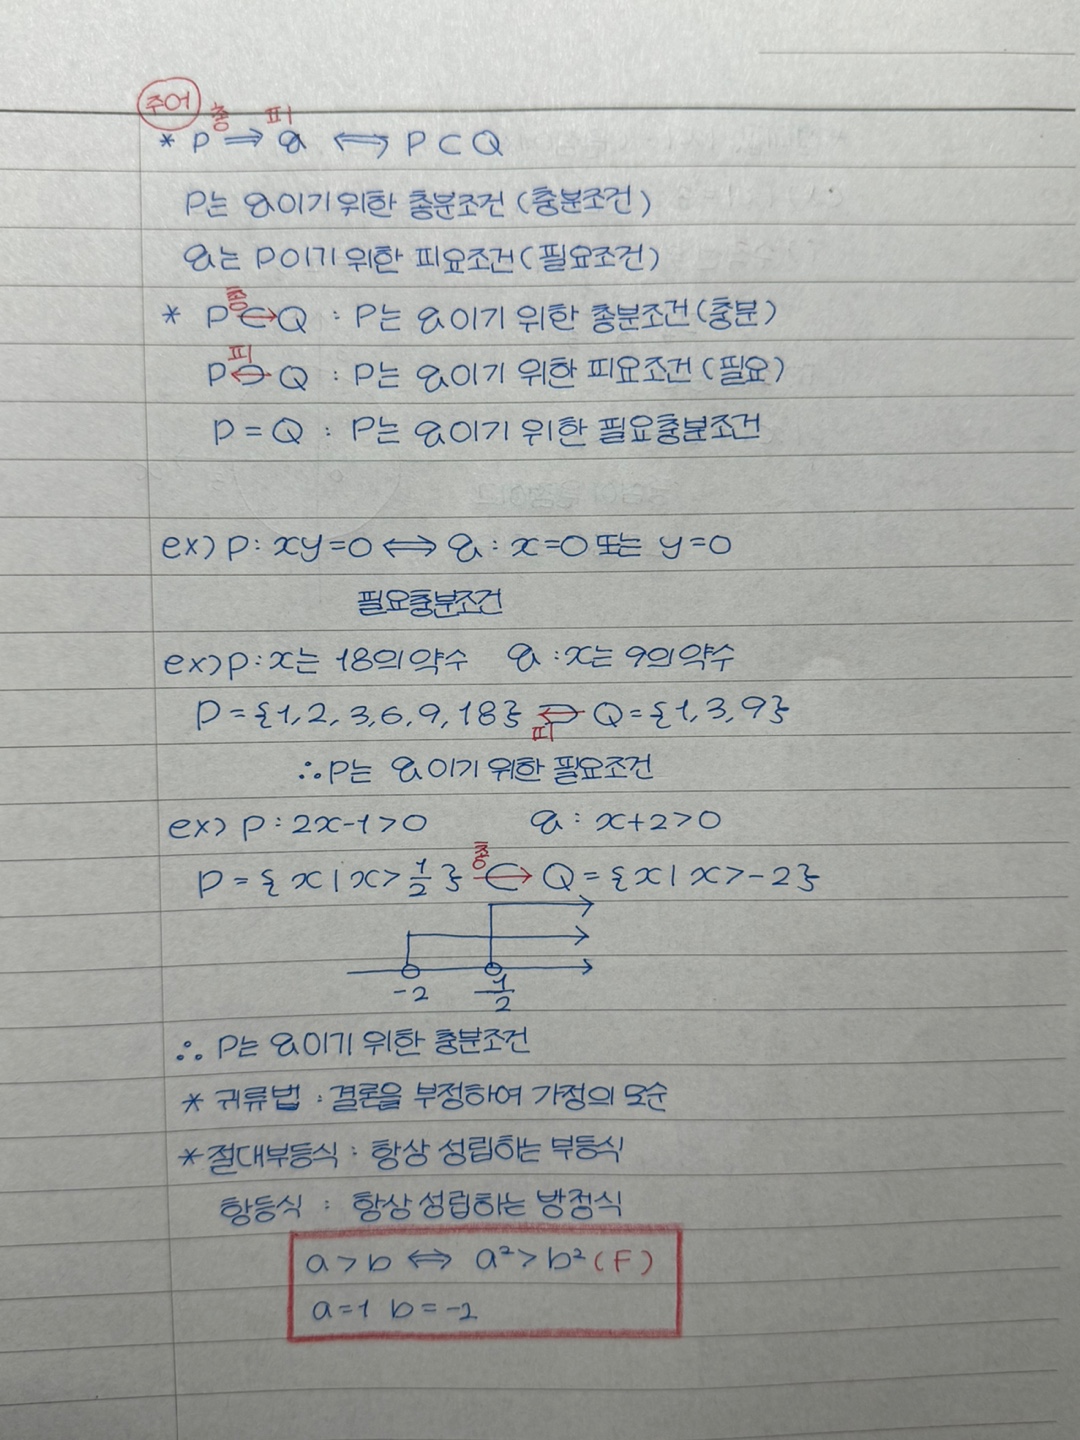 주어 총 피
* p ⇒ q ⟺ P ⊂ Q
P는 q이기 위한 총분조건(충분조건)
q는 p이기 위한 피요조건(필요조건)
총
* P ⊂→ Q : P는 q이기 위한 총분조건(충분)
피
P ←⊃ Q : P는 q이기 위한 피요조건(필요)
P = Q : P는 q이기 위한 필요충분조건
ex) p : xy=0 ⟺ q : x=0 또는 y=0
필요충분조건
ex) p : x는 18의 약수 q : x는 9의 약수
P = {1, 2, 3, 6, 9, 18} ⊃ Q = {1, 3, 9}
피
∴ p는 q이기 위한 필요조건
ex) p : 2x-1>0 q : x+2>0
총
P = { x | x > 1/2 } ⊂→ Q = {x | x > -2}
-2 1/2
∴ P는 q이기 위한 충분조건
* 귀류법 : 결론을 부정하여 가정의 모순
* 절대부등식 : 항상 성립하는 부등식
항등식 : 항상 성립하는 방정식
a > b ⟺ a² > b² (F)
a=1 b=-2